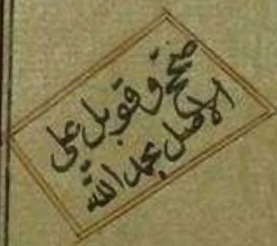 صح وقوبل على
الاصل بحمد الله